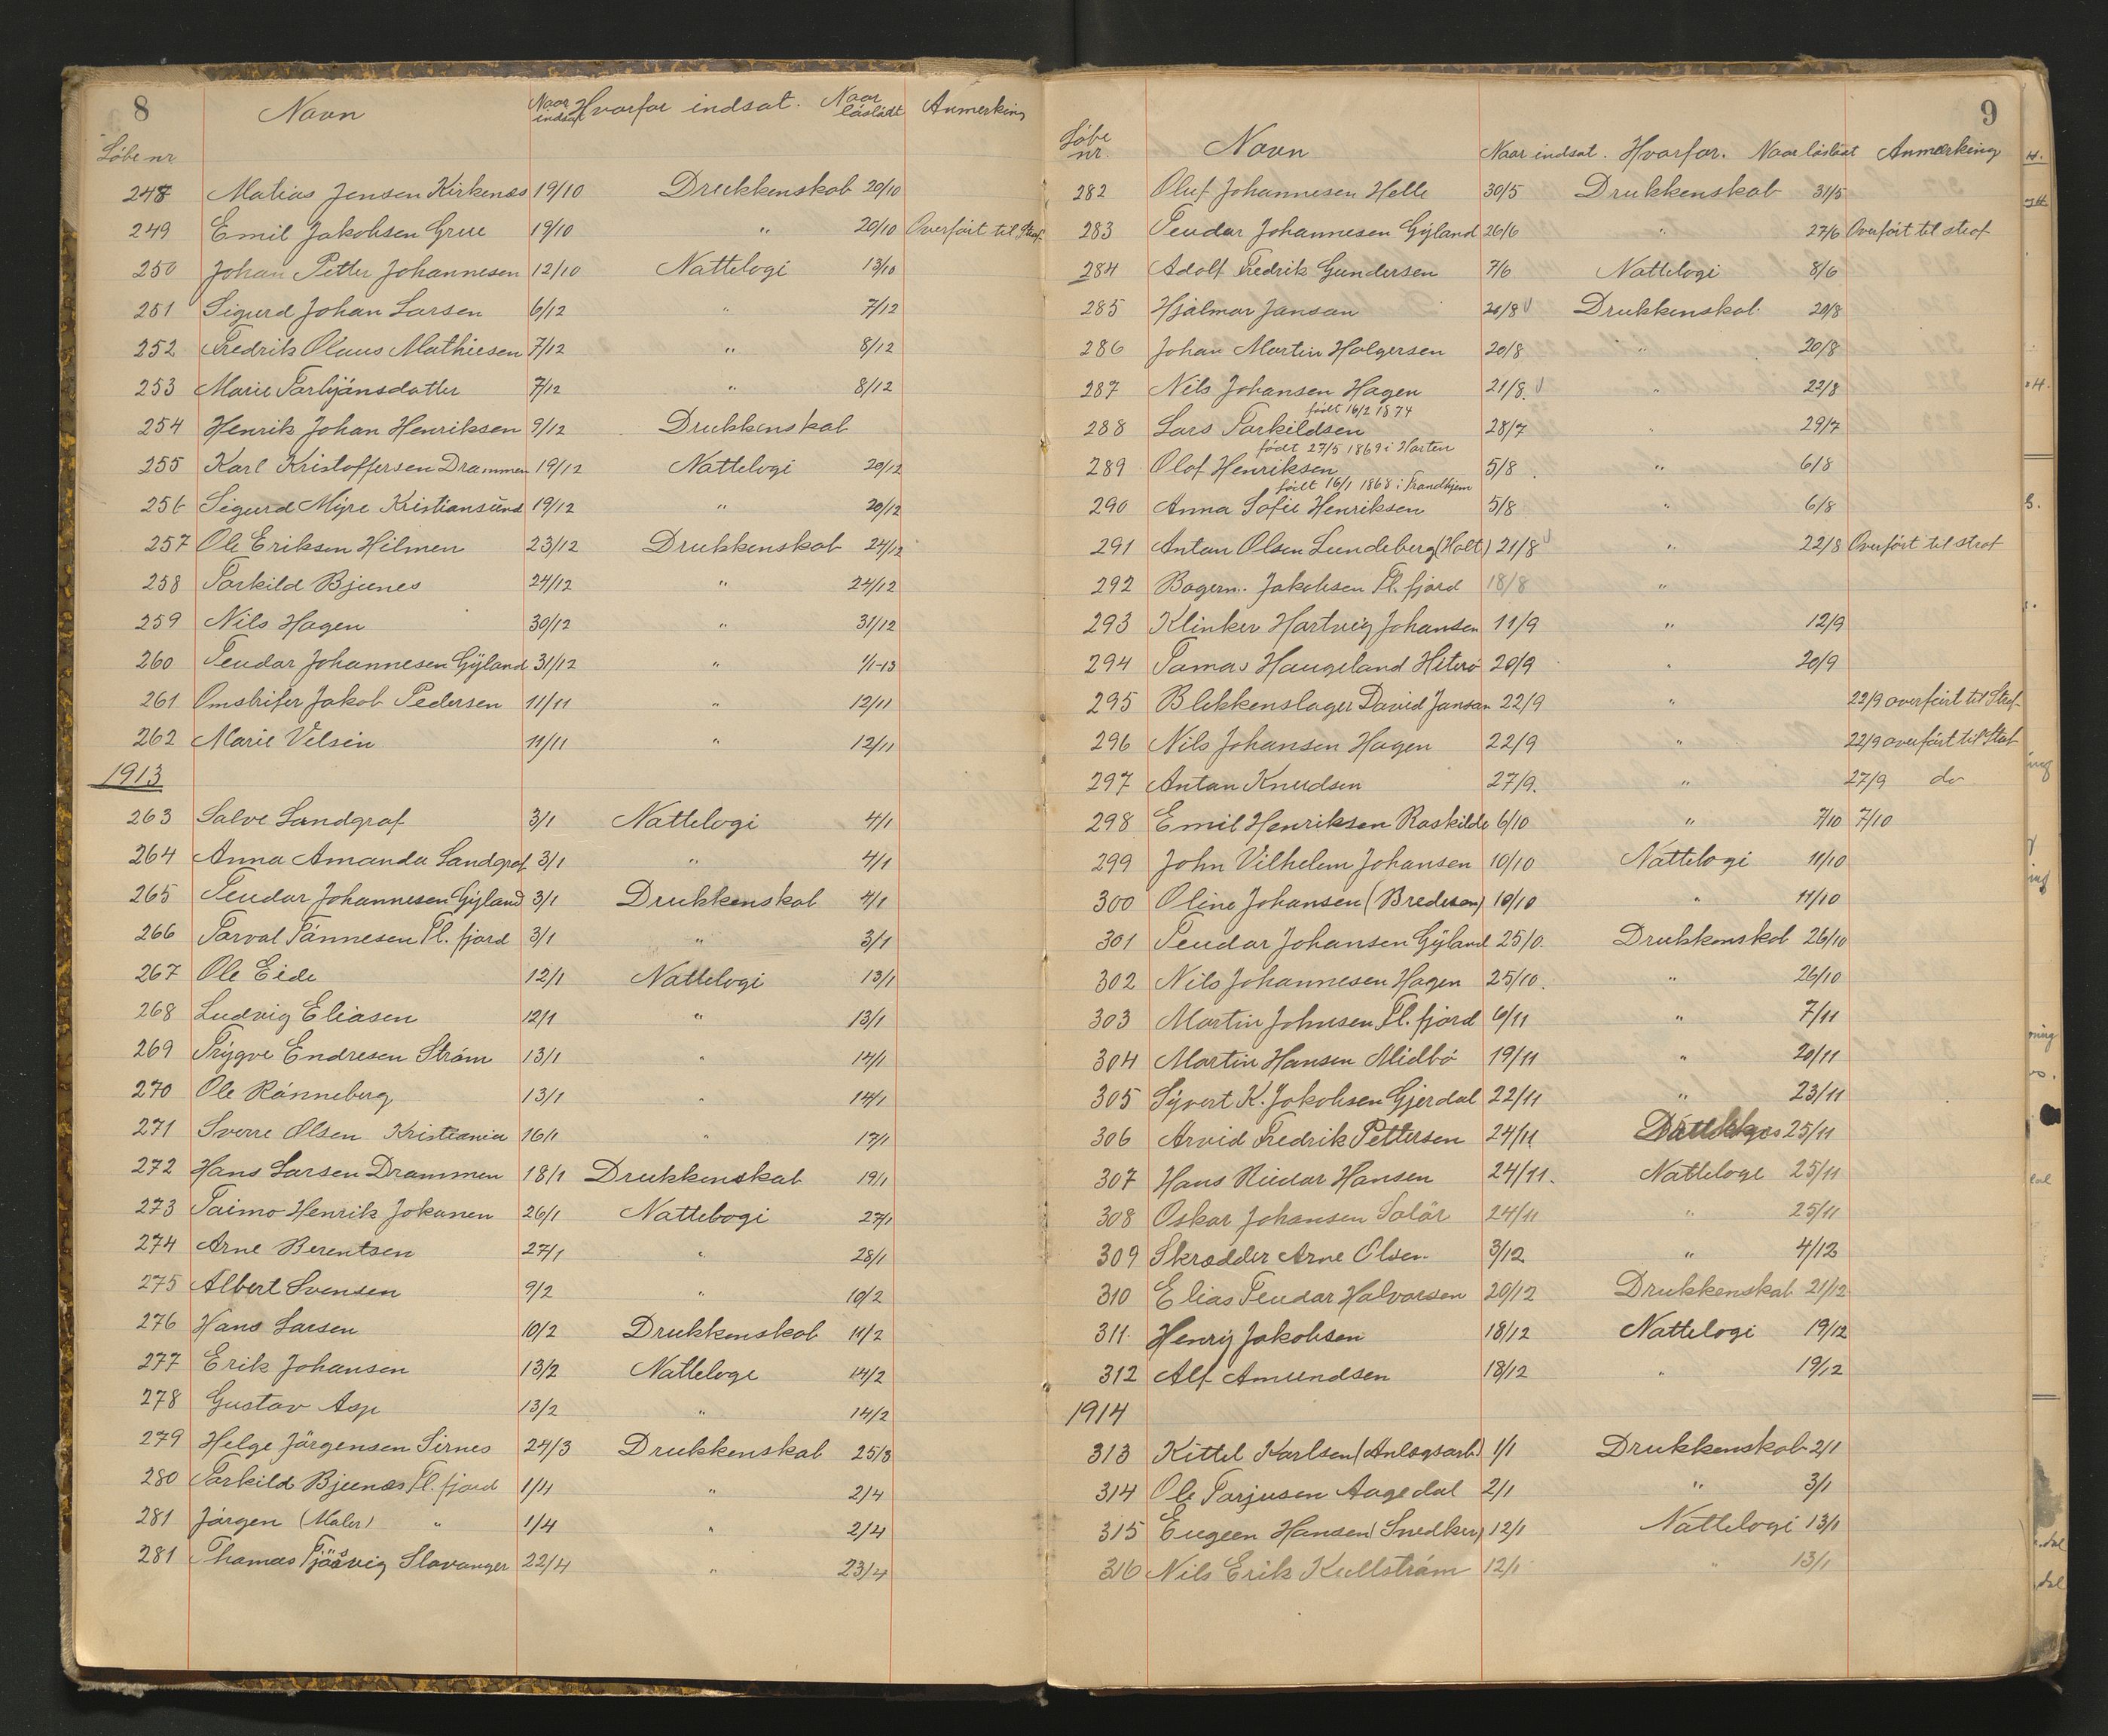 8 Navn Naar indsat Hvorfor indsat. Naar løsladt Anmerkning
Løbe nr
248 Matias Jensen Kirkenæs 19/10 Drukkenskab 20/10
249 Emil Jakobsen Grue 19/10 " 20/10 Overført til Straf
250 Johan Petter Johannesen 12/10 Nattelogi 13/10
251 Sigurd Johan Larsen 6/12 " 7/12
252 Fredrik Olaus Mathiesen 7/12 " 8/12
253 Marie Torbjønsdatter 7/12 " 8/12
254 Henrik Johan Henriksen 9/12 Drukkenskab
255 Karl Kristoffersen Drammen 19/12 Nattelogi 20/12
256 Sigurd Myre Kristiansund 19/12 " 20/12
257 Ole Eriksen Hilmen 23/12 Drukkenskab 24/12
258 Torkild Bjunes 24/12 " 24/12
259 Nils Hagen 30/12 " 31/12
260 Teudor Johannesen Gyland 31/12 " 1/1-13
261 Omstrifer Jakob Pedersen 11/11 " 12/11
262 Marie Velsin 11/11 " 12/11
1913
263 Salve Landgraf 3/1 Nattelogi 4/1
264 Anna Amanda Landgraf 3/1 " 4/1
265 Teudor Johannesen Gyland 3/1 Drukkenskab 4/1
266 Torval Tønnesen Fl. fjord 3/1 " 3/1
267 Ole Eide 12/1 Nattelogi 13/1
268 Ludvig Eliasen 12/1 " 13/1
269 Trygve Endresen Strøm 13/1 " 14/1
270 Ole Rønneberg 13/1 " 14/1
271 Sverre Olsen Kristiania 16/1 " 17/1
272 Hans Larsen Drammen 18/1 Drukkenskab 19/1
273 Taimo Henrik Jokanen 26/1 Nattelogi 27/1
274 Arne Berentsen 27/1 " 28/1
275 Albert Svensen 9/2 " 10/2
276 Hans Larsen 10/2 Drukkenskab 11/2
277 Erik Johansen 13/2 Nattelogi 14/2
278 Gustav Asp 13/2 " 14/2
279 Helge Jørgensen Sirnes 24/3 Drukkenskab 25/3
280 Torkild Bjunæs Fl. fjord 1/4 " 2/4
281 Jørgen (Maler) " 1/4 " 2/4
281 Thomas Tjøsvig Stavanger 22/4 " 23/4
9
Løbe nr. Navn Naar indsat. Hvorfor. Naar løsladt Anmærkning
282 Oluf Johannesen Helle 30/5 Drukkenskab 31/5
283 Teudor Johannesen Gyland 26/6 " 27/6 Overført til straf
284 Adolf Fredrik Gundersen 7/6 Nattelogi 8/6
285 Hjalmar Janson 20/8 Drukkenskab 20/8
286 Johan Martin Holgersen 20/8 " 20/8
287 Nils Johansen Hagen 21/8 " 22/8
født 16/2 1874
288 Lars Torkildsen 28/7 " 29/7
født 27/5 1869 i Horten
289 Olof Henriksen 5/8 " 6/8
født 16/1 1868 i Trondhjem
290 Anna Sofie Henriksen 5/8 " 6/8
291 Anton Olsen Lundeberg (Holt) 21/8 " 22/8 Overført til straf
292 Bagerm. Jakobsen Fl. fjord 18/8 "
293 Klinker Hartvig Johansen 11/9 " 12/9
294 Tomas Haugeland Hiterø 20/9 " 20/9
295 Blekkenslager David Janson 22/9 " 22/9 overført til Straf
296 Nils Johansen Hagen 22/9 " 22/9 overført til Straf
297 Anton Knudsen 27/9. " 27/9 do
298 Emil Henriksen Roskilde 6/10 " 7/10 7/10
299 John Vilhelm Johansen 10/10 Nattelogi 11/10
300 Oline Johansen (Bredesen) 10/10 " 11/10
301 Teudor Johansen Gyland 25/0. Drukkenskab 26/10
302 Nils Johannesen Hagen 25/10. " 26/10
303 Martin Johnsen Fl. fjord 6/11 " 7/11
304 Martin Hansen Midbø 19/11 " 20/11
305 Syvert K. Jakobsen Gjerdal 22/11 " 23/11
306 Arvid Fredrik Pettersen 24/11 25/11
307 Hans Reidar Hansen 24/11. Nattelogi 25/11
308 Oskar Johansen Solør 24/11 " 25/11
309 Skrædder Arne Olsen. 3/12 " 4/12
310 Elias Teudor Halvorsen 20/12 Drukkenskab 21/12
311. Henry Jakobsen 18/12 Nattelogi 19/12
312 Alf Amundsen 18/12 " 19/12
1914
313 Kittel Karlsen (Anlægsarb) 1/1 Drukkenskab 2/1
314 Ole Torjusen Aagedal 2/1 " 3/1
315 Eugeen Hansen (Snedker) 12/1 Nattelogi 13/1
316 Nils Erik Kullstrøm 12/1 " 13/1